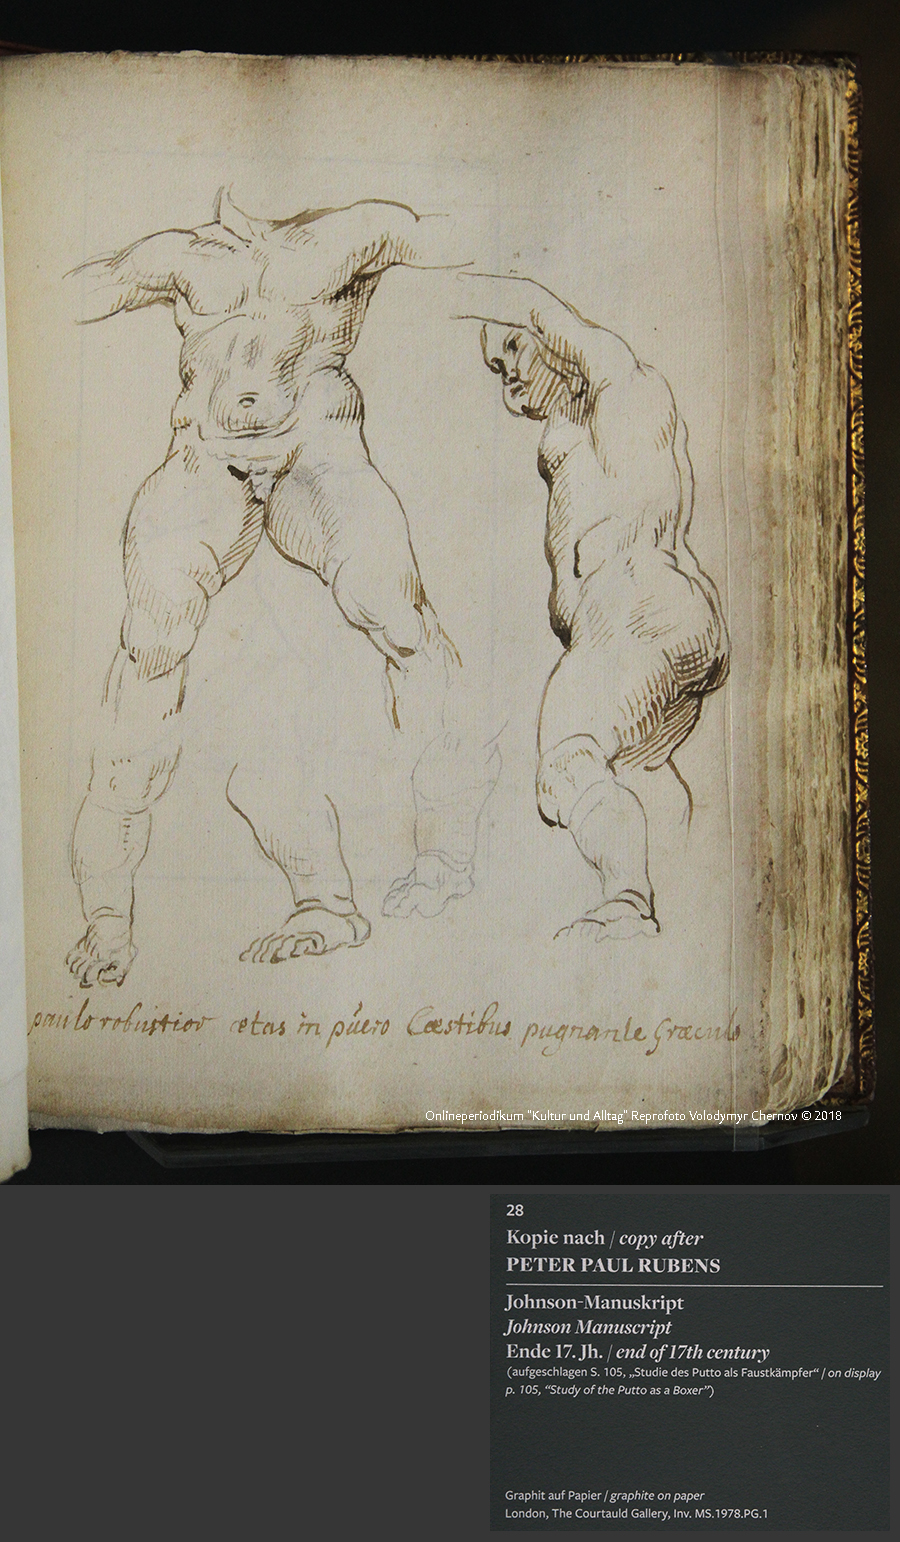 paulo robustior ætas in púero Cæstibus pugnante Græculo
Onlineperiodikum "Kultur und Alltag" Reprofoto Volodymyr Chernov © 2018
28
Kopie nach / copy after
PETER PAUL RUBENS
Johnson-Manuskript
Johnson Manuscript
Ende 17. Jh. / end of 17th century
(aufgeschlagen S. 105, „Studie des Putto als Faustkämpfer“ / on display
p. 105, “Study of the Putto as a Boxer”)
Graphit auf Papier / graphite on paper
London, The Courtauld Gallery, Inv. MS.1978.PG.1